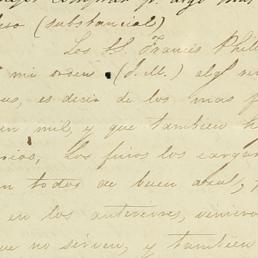 comprar p. algo mas
eso (substancial)
Los SS. Francis Phill
mi orden (S.M.) algo se
es decir de los mas f
en mil, y que tambien h
rios, Los finos los cargar
n todos de buen azul,
en los anteriores, vinieron
que no sirven, y tambien